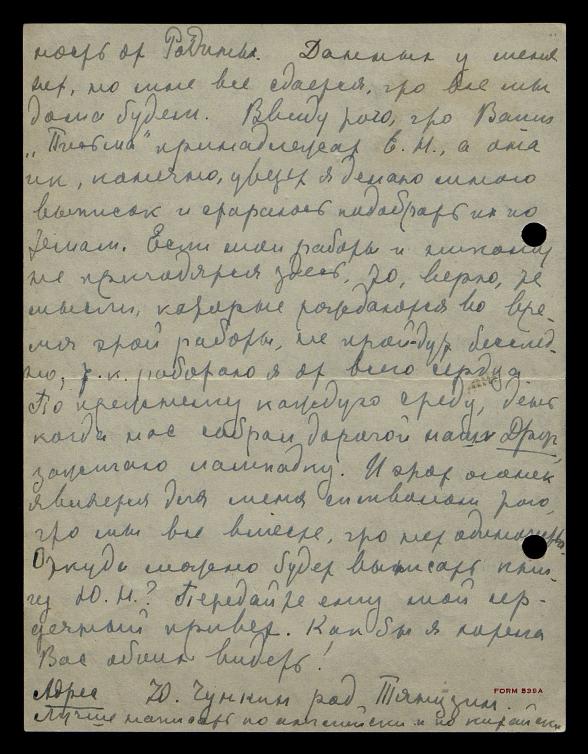 ность от Родины. Данных у меня
нет, но мне все сдается, что все мы
дома будем. Ввиду того, что Ваши
„Письма" принадлежат Е. И., а она
их, конечно, увезет я делаю много
выписок и стараюсь подобрать их по
темам. Если мои работы и никому
не пригодятся здесь, то, верно, те
мысли, которые рождаются во вре-
мя этой работы, не пройдут бесслед-
но, т.к. работаю я от всего сердца.
По прежнему каждую среду, день
когда нас собрал дорогой наш Друг
зажигаю лампадку. И этот огонек
является для меня символом того,
что мы все вместе, что нет одиночества.
Откуда можно будет выписать кни-
гу Ю. Н.? Передайте ему мой сер-
дечный привет. Как бы я хотела
Вас обоих видеть!
Адрес Ю. Чункин род Тяндзин.
Лучше написать по английски и по китайски
FORM 539A